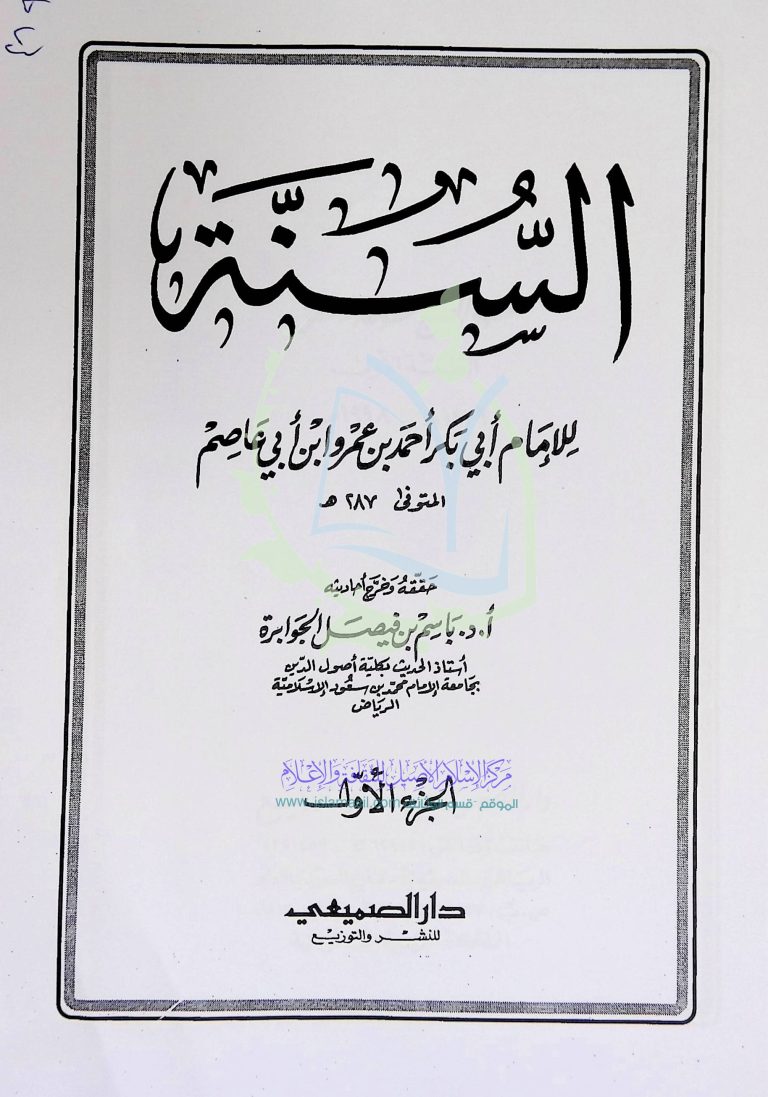 السُّنَّة
للإمام أبي بكر أحمد بن عمرو ابن أبي عاصم
المتوفى ٢٨٧ هـ
حَقَّقَهُ وَخَرَّجَ أحاديثه
أ.د. باسِم بن فيصَل الجَوابرة
أستاذ الحديث بكليّة أصول الدّين
بجامعة الإمام محمّد بن سعُود الإسْلاميّة
الريَاض
مركز الإسلام الأصيل للثقافة والإعلام
الجزء الأوّل
الموقع -
www.islam
دار الصميعي
للنشر والتوزيع